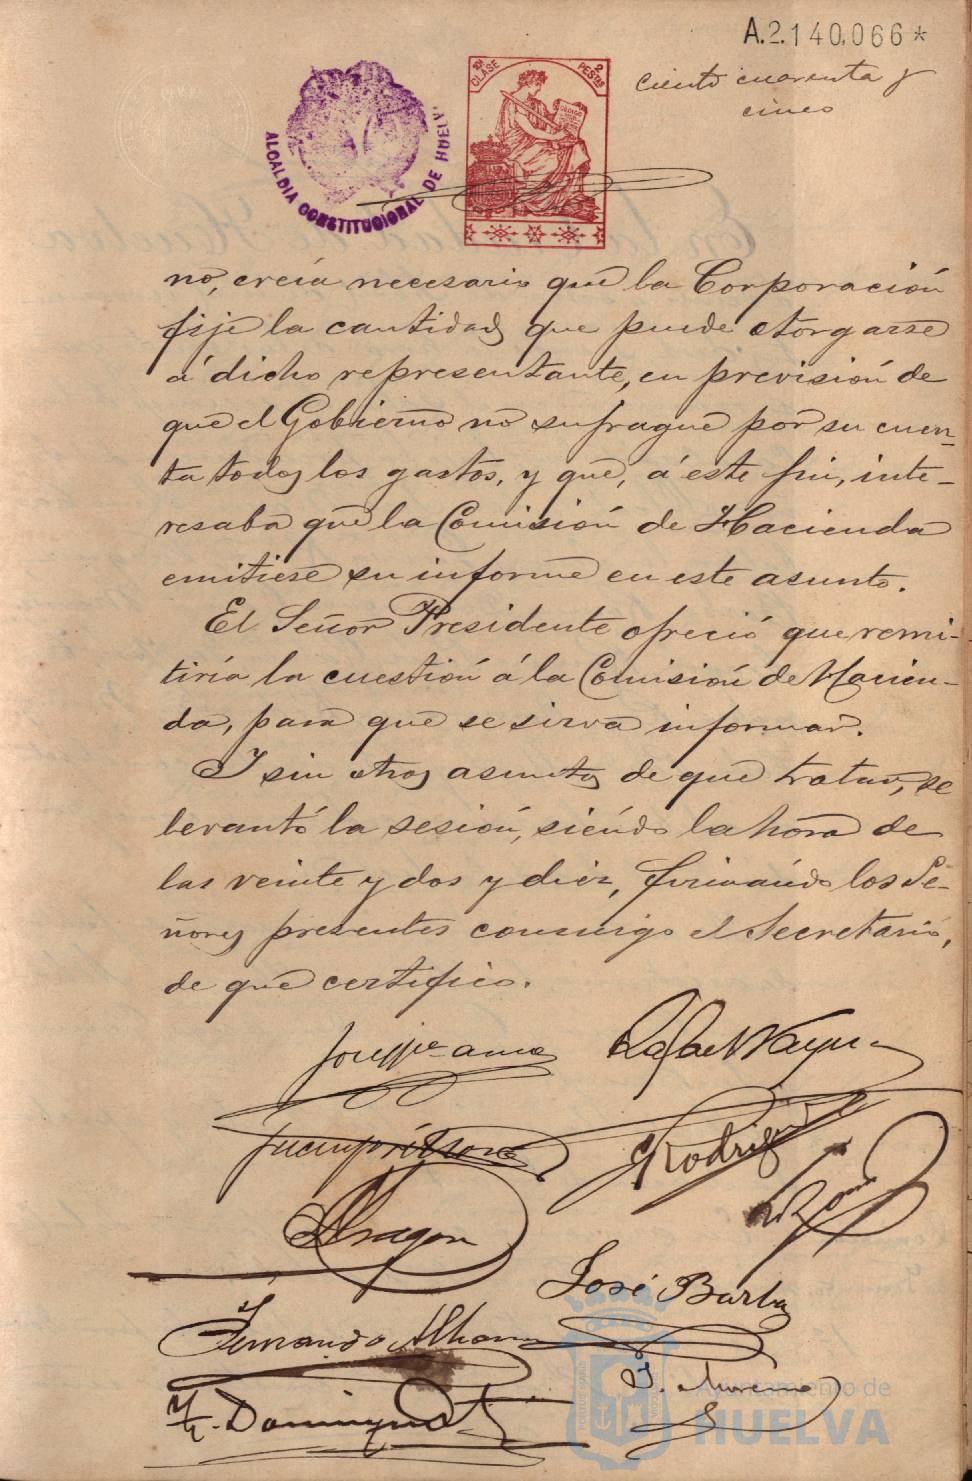 A.2.140,066*
ciento cuarenta y
cinco
ALCALDIA CONSTITUCIONAL DE HUELV
10ª CLASE 2 PESTAS
no, creía necesario que la Corporación
fije la cantidad que puede otorgarse
á dicho representante, en previsión de
que el Gobierno no sufrague por su cuen-
ta todos los gastos, y que, á este fin, inte-
resaba que la Comisión de Hacienda
emitiese su informe en este asunto.
El Señor Presidente ofreció que remi-
tiría la cuestión á la Comisión de Hacien-
da, para que se sirva informar.
Y sin otros asuntos de que tratar, se
levantó la sesión, siéndo la hora de
las veinte y dos y diez, firmándo los Se-
ñores presentes conmigo el Secretario,
de que certifico.
Rafael
Rodríguez
Aragon
José Barba
Fernando
J. Moreno
M. Dominguez
Ayuntamiento de
HUELVA